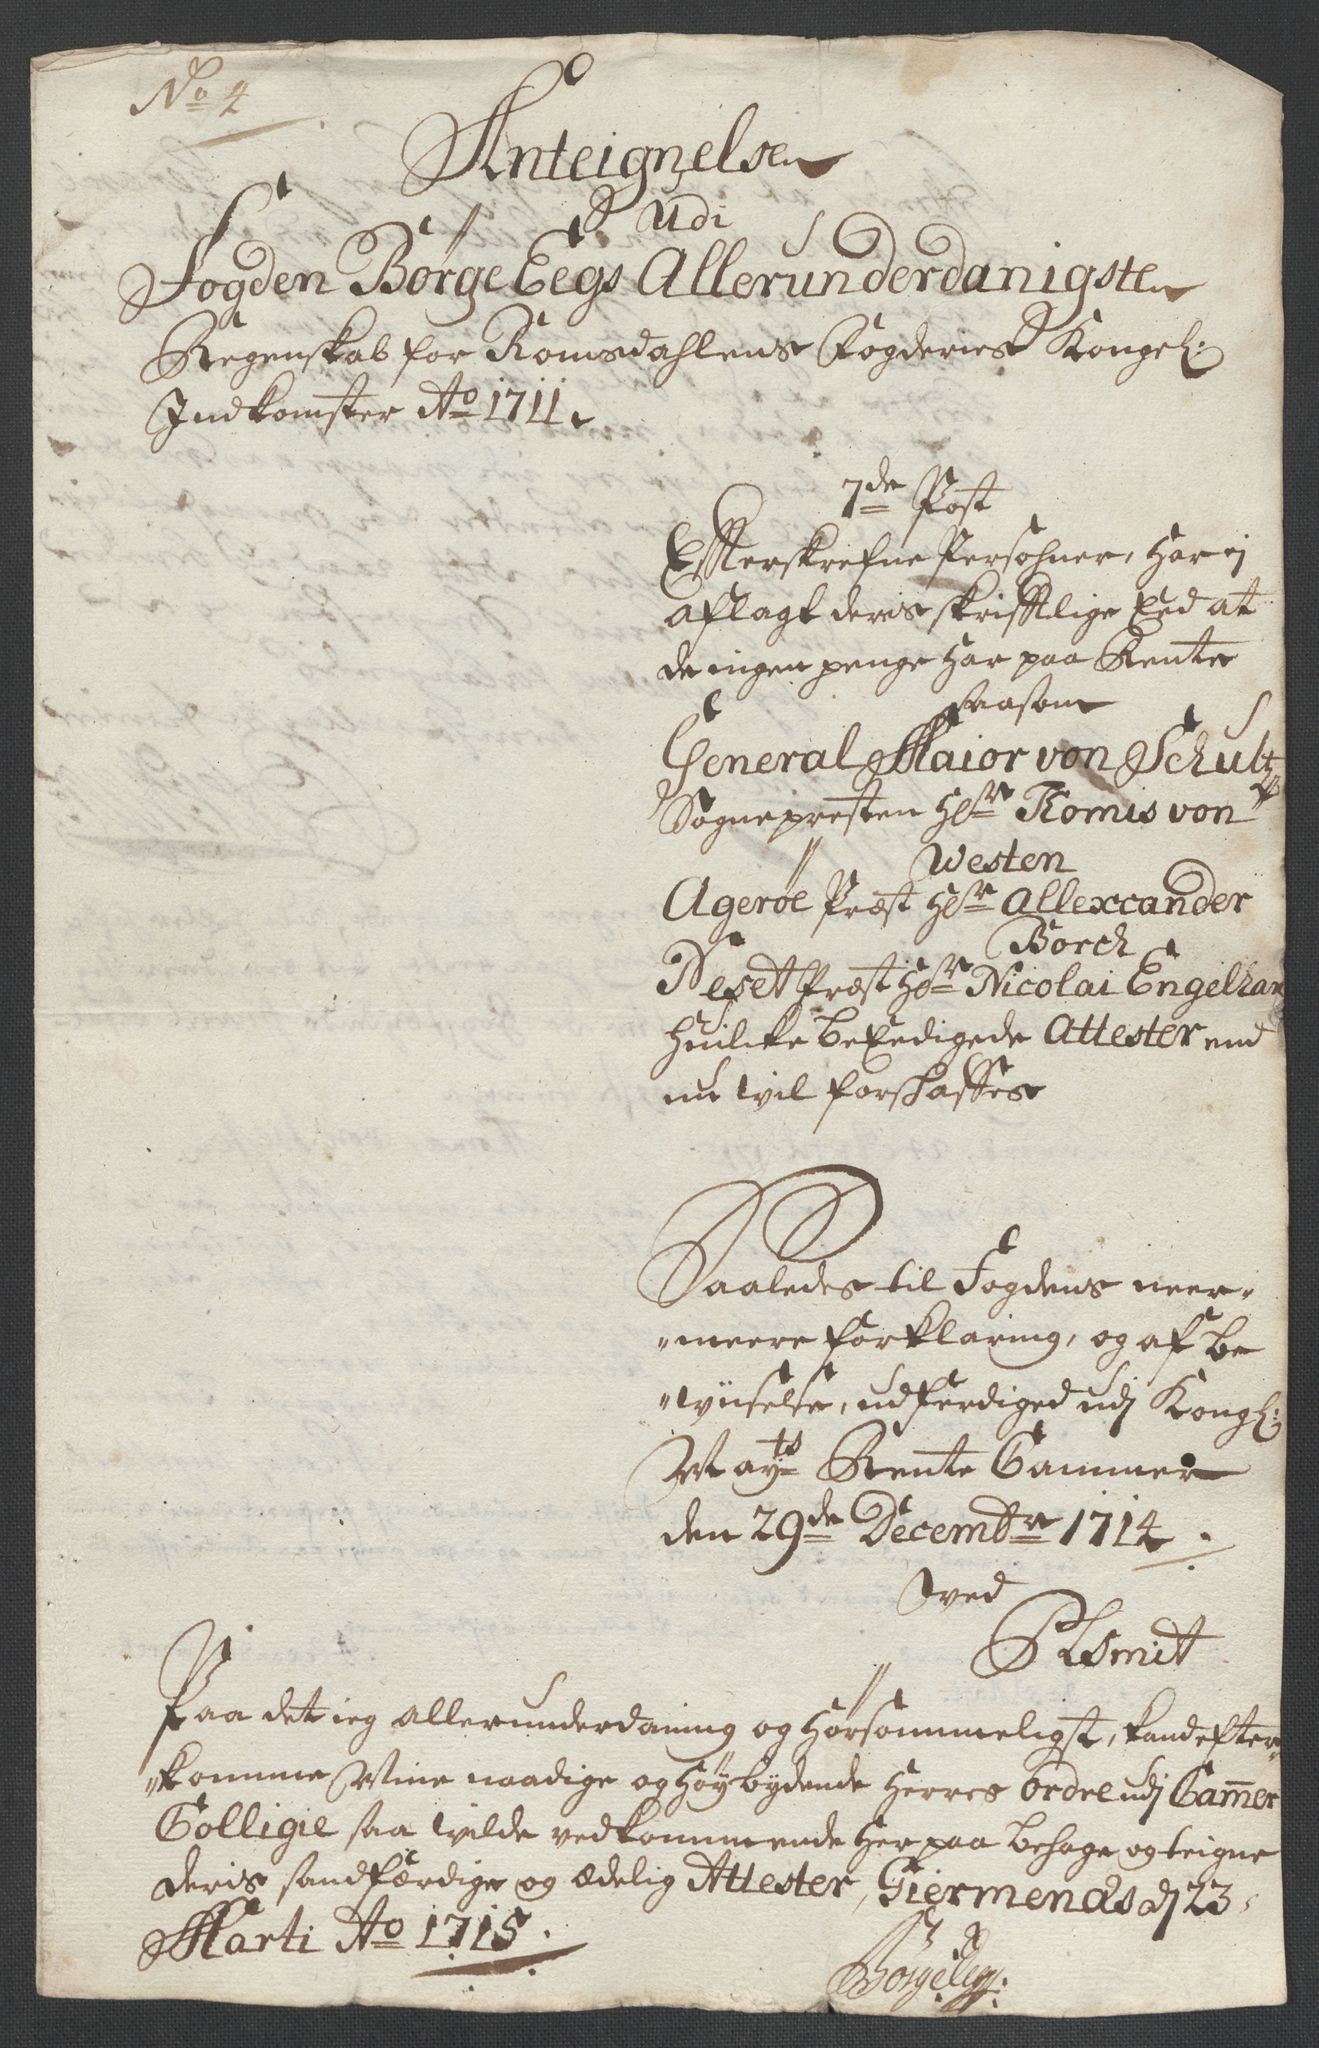 No 4
Anteignelse
Udi
Fogden Børge Eegs Allerunderdanigste
Regenskab for Romsdahlens Fogderies Kongel:
Indkomster Ao 1711.
7de Post
Efterskrefne Persohner, har ej
aflagt deris skrifftlige Eed at
de ingen penge har paa Rente
saasom
General Maior von Schultz
Sognepresten Hr Tomis von
Westen
Agerøe Præst Hr Allexcander
Borch
Weset Præst Hr Nicolai Engelhar
huilcke beEedigede Attester end
nu vil forskaffes
Saaledes til Fogdens neer-
-meere forklaring, og af be
-wiiselse, udferdiged udj Kongl:
Mayts Rente Cammer
den 29de Decembr 1714.
ved
PLSmit
Paa det ieg allerunderdanig og hørsommeligst, kand efter-
-komme Mine naadige og høybydende Herres Ordre udj Cam̅er
Collegie saa wilde vedkommende her paa behage og teigne
deris sandfærdige og ædelig Attester, Giermendnes dj 23
Marti Ao 1715.
Børge Eeg: